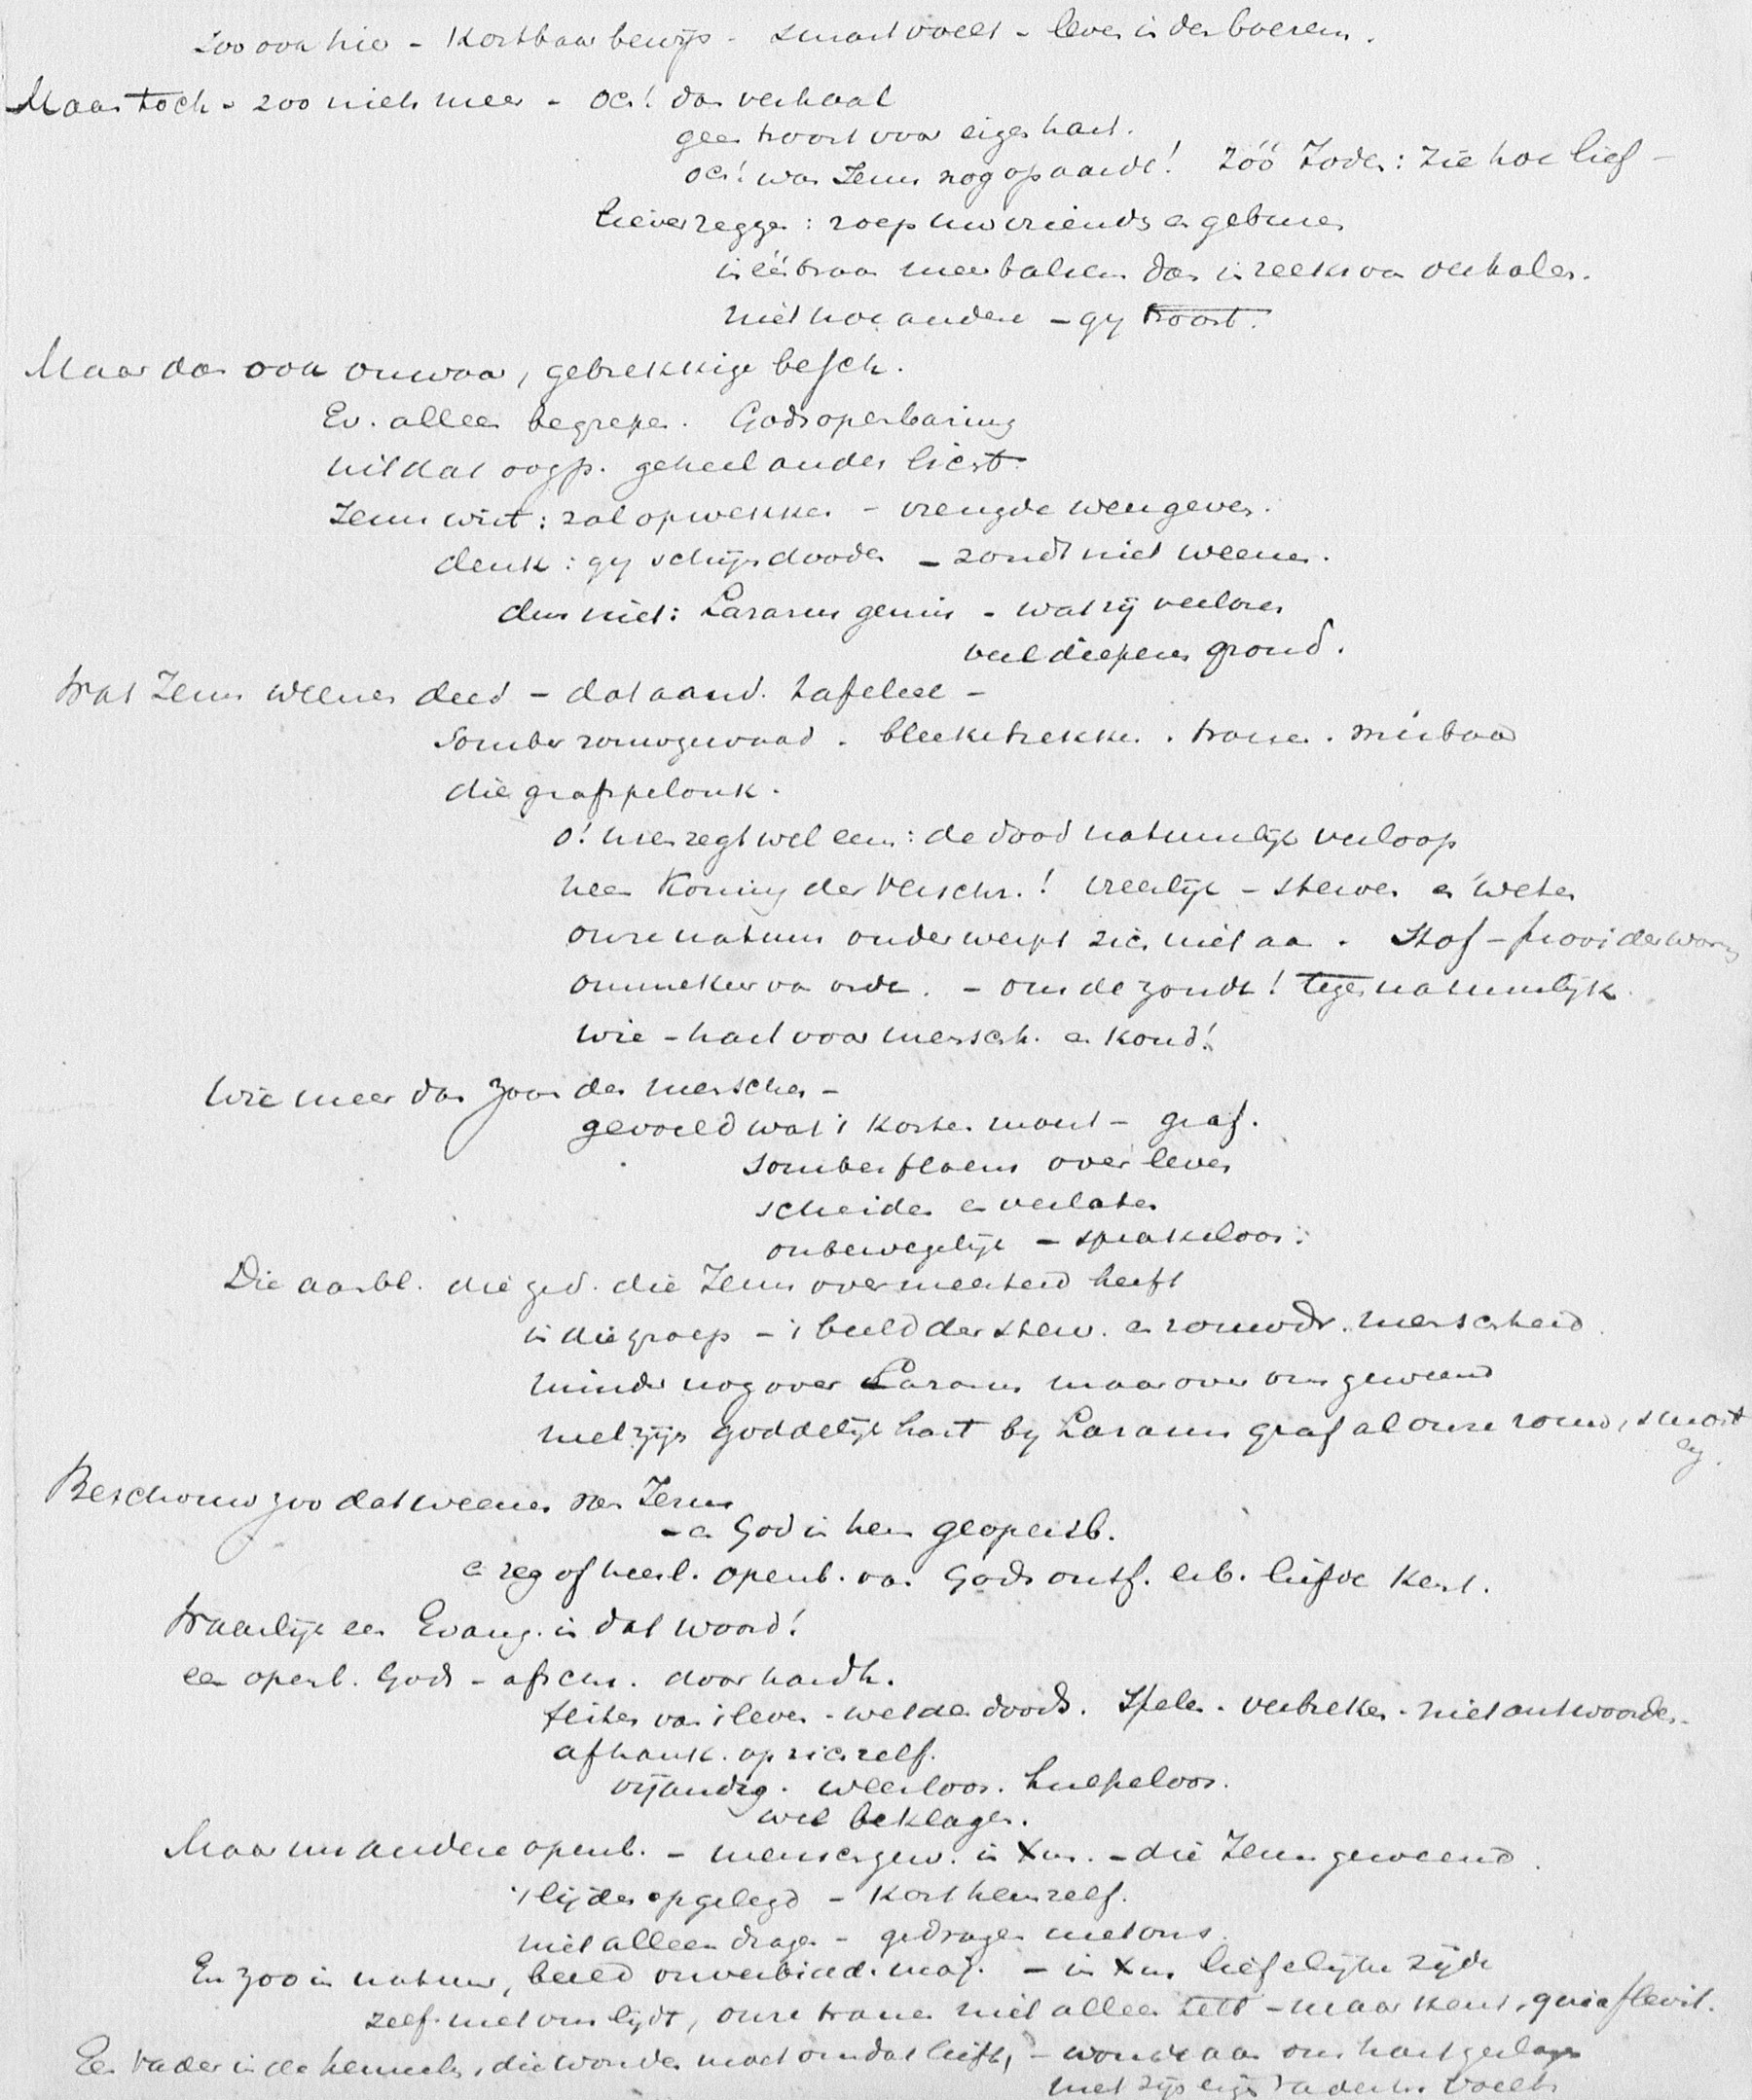 zoo ook hier - kostbaar bewijs - smart voelt - leven in den boezem.
Maar toch - zoo niets meer - och! dan verhaal
geen troost voor eigen hart.
och! was Jezus nog op aarde! zóó Joden: zie hoe lief -
liever zeggen: roep uw vrienden en geburen
in één traan meer balsem dan in reeks van verhalen.
niet hoe anderen - gy troost.
Maar dan ook onwaar, gebrekkige besch.
Ev. alleen begrepen. Gods openbaring
uit dat oogp. geheel anders licht.
Jezus wist: zal opwekken - vreugde weergeven.
denk: gy schijndooden - zoudt niet weenen.
dus niet: Lazarus gemis - wat zij verloren
veel dieperen grond.
Wat Jezus weenen deed - dat aand. tafereel -
Somber rouwgewaad. bleeke trekken. tranen. misbaar
die grafspelonk.
o! men zegt wel eens: de dood natuurlijk verloop
neen Koning der Verschr.! vreeslijk - sterven en weten
onze natuur onderwerpt zich niet aan. Stof - prooi der worm
ommekeer van orde. - om de zonde! tegennatuurlijk.
wie - hart voor mensch. en koud!
Wie meer dan Zoon des menschen -
gevoeld wat 't kosten moest - graf.
somber floers over leven
scheiden en verlaten
onbewegelijk - sprakeloos:
Die aanbl. die ged. die Jezus overmeesterd heeft
in die groep - 't beeld der sterv. en rouwdr. menschheid.
minder nog over Lazarus maar over ons geweend
met zijn goddelijk hart by Lazarus graf al onze rouw, smart
Beschouw zoo dat weenen van Jezus
- en God in hem geopenb.
en zeg of heerl. openb. van Gods ontf. erb. liefde kent.
Waarlijk een Evang. in dat woord!
een openb. Gods - afschr. door hardh.
feiten van 't leven - wet des doods. Spelen. verbreken. niet antwoorden.
afhank. op zichzelf.
vijandig. weerloos. hulpeloos.
wel beklagen.
Maar nu andere openb. - menschgew. in Xus. - die Jezus geweend.
't lijden opgelegd - kost hemzelf.
niet alleen dragen - gedragen met ons.
En zoo in natuur, beeld onverbidd. maj. - in Xus liefelijke zijde
zelf met ons lijdt, onze tranen niet alleen telt - maar kent, quia flevit.
Een Vader in de hemelen, die wonden moet omdat liefh, - wonde aan ons hart geslagen
met zijn eigen vaderh. voelt